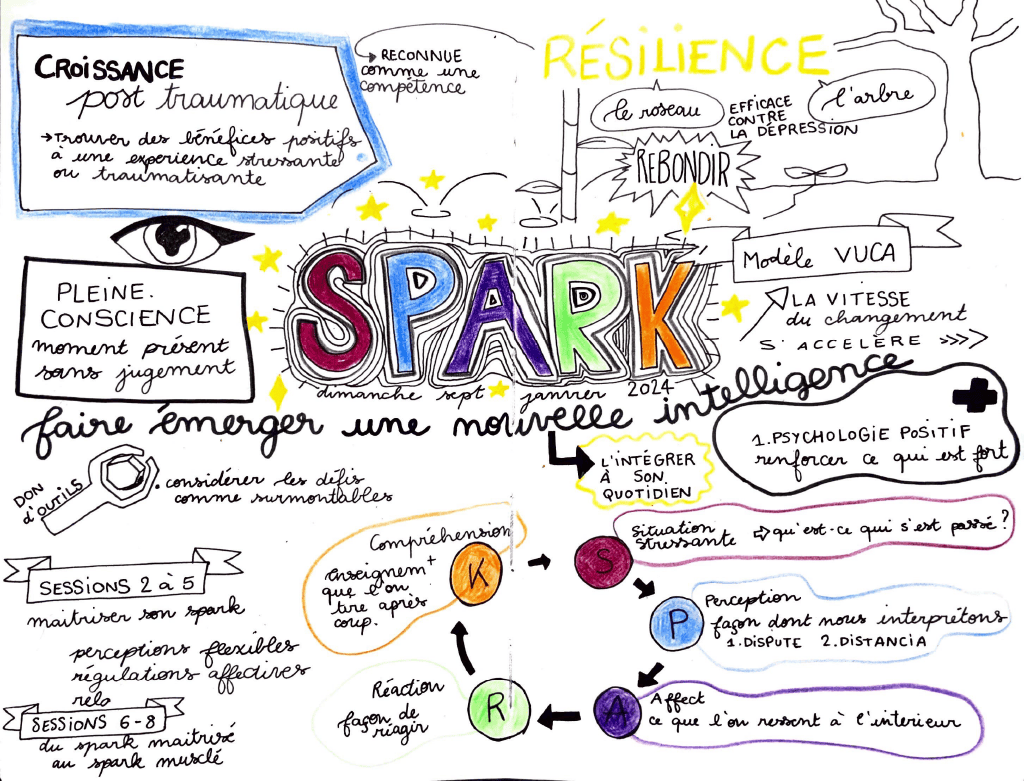 CROISSANCE
post traumatique
→ Trouver des bénéfices positifs
à une experience stressante
ou traumatisante
→ RECONNUE
comme une
compétence
RÉSILIENCE
le roseau
EFFICACE
CONTRE
LA DÉPRESSION
l'arbre
REBONDIR
PLEINE.
CONSCIENCE
moment présent
sans jugement
SPARK
dimanche sept janvier 2024
Modèle VUCA
LA VITESSE
du changement
S'ACCELÈRE >>>>
faire émerger une nouvelle intelligence
L'INTÉGRER
À SON
QUOTIDIEN
1. PSYCHOLOGIE POSITIF
renforcer ce qui est fort
DON
d'OUTILS
. considérer les défis
comme surmontables
SESSIONS 2 à 5
maitriser son spark
perceptions flexibles
régulations affectives
rela
SESSIONS 6-8
du spark maitrisé
au spark musclé
S
Situation
stressante ⇨ qu'est-ce qui s'est passé?
P
Perception
façon dont nous interprétons
1. DISPUTE 2. DISTANCIA
A
Affect
ce que l'on ressent à l'interieur
R
Réaction
façon de
riagir
K
Compréhension
+
enseignem
que l'on
tire après
coup.